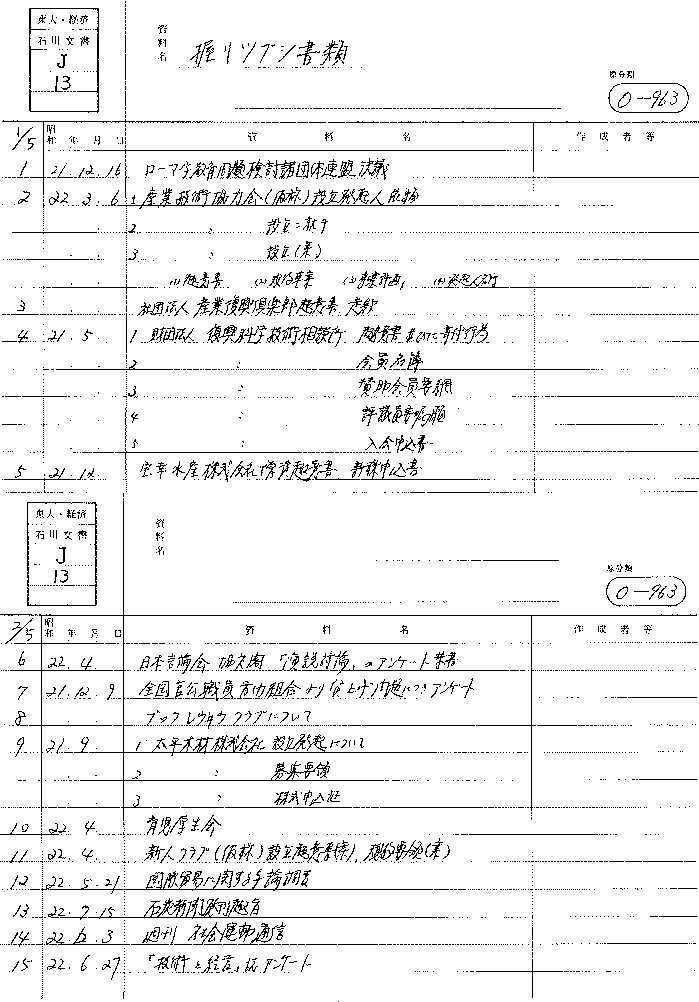 東大・経済
石川文書
J
13
資料名
握リツブシ書類
原分類
0-963
1/5 昭和 年 月 日 資料名 作成者等
1 21.12.16 ローマ字教育問題検討諸団体連盟 決議
2 22.3.6 1 産業技術協力会(仮称)設立発起人依頼
2 〃 設立ニ就テ
3 〃 設立(案)
(1) 趣意書 (2) (3) 事業計画, (4) 発起人
3 社団法人 産業復興倶楽部趣意書 定款
4 21.5. 1 財団法人 復興科学技術相談所 趣意書 寄付行為
2 〃 会員名簿
3 〃 賛助会員要綱
4 〃 評議員
5 〃 入会申込書
5 21.12 水産株式会社増資趣意書 新株申込書
東大・経済
石川文書
J
13
資料名
原分類
0-963
2/5 昭和 年 月 日 資料名 作成者等
6 22.4. 日本言論会 「演説討論」のアンケート
7 21.12.9 全国官公職員労力組合より 問題につきアンケート
8 ブック レヴュウ クラブについて
9 21.9. 1 太平木材株式会社設立発起について
2 〃 募集要領
3 〃 株式申込証
10 22.4 育児厚生会
11 22.4. 新人クラブ(仮称)設立趣意書(案),
12 22.5.21 国際貿易に関する予論調査
13 22.7.15 石炭
14 22.12.3 週刊 社会運動通信
15 22.6.27 「技術と経営」誌アンケート